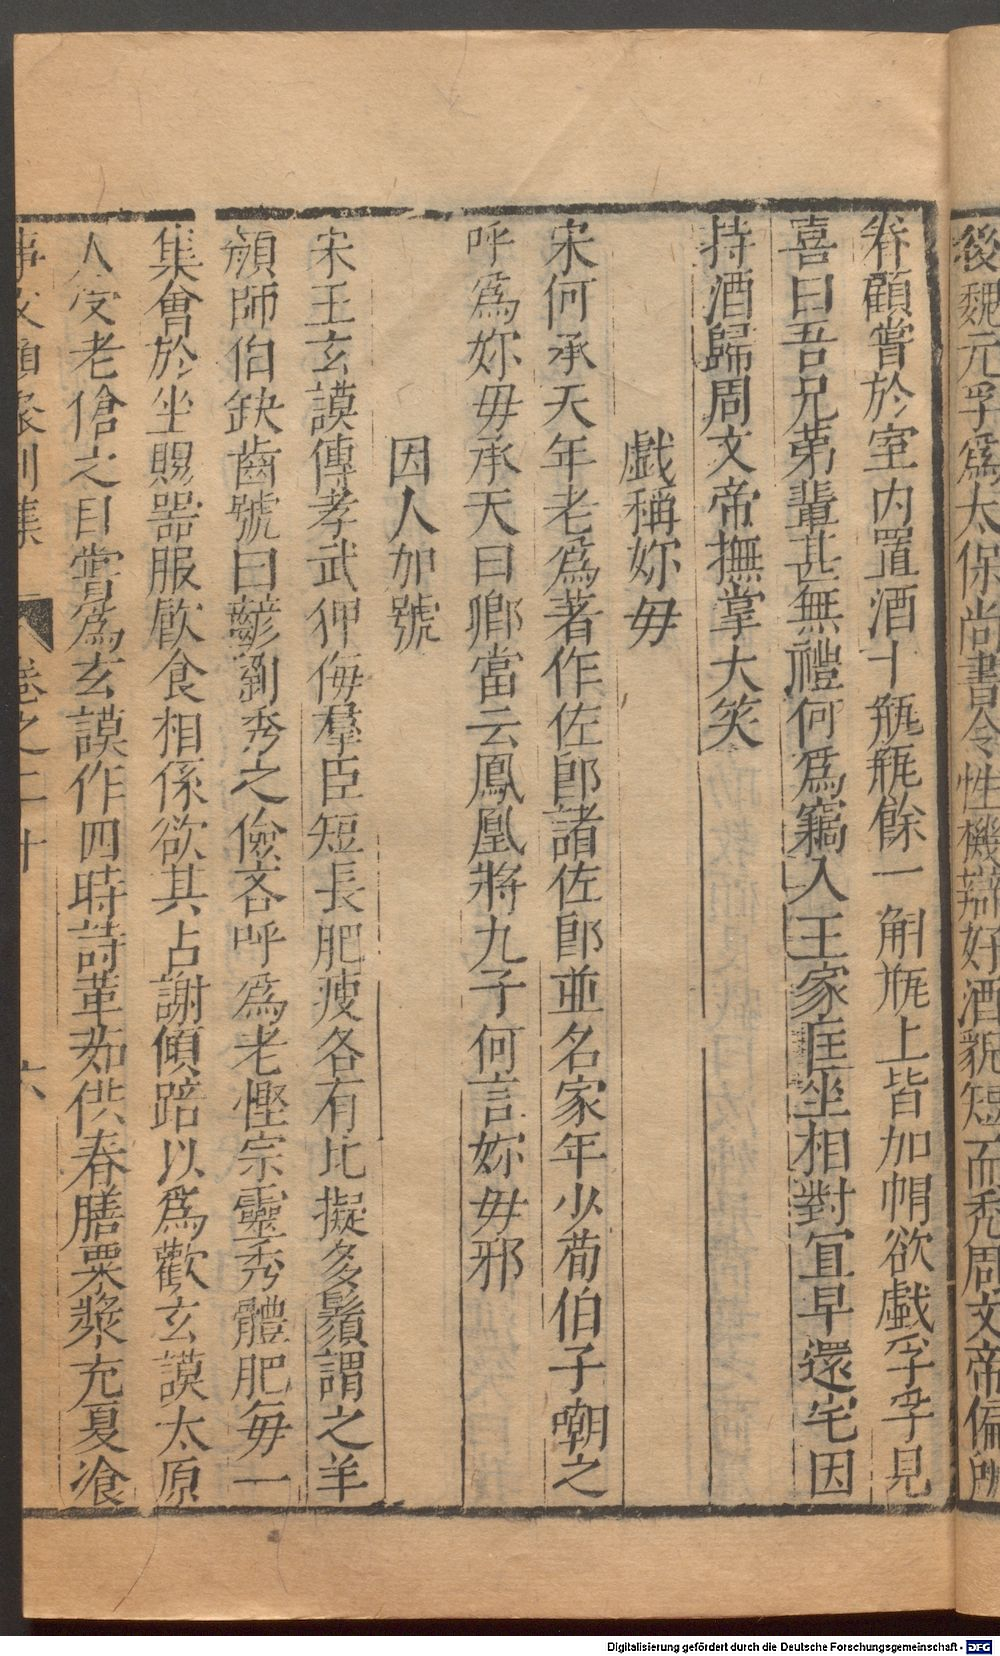 後魏元孚爲太保尚書令性機辯好酒貌短而禿周文帝偏所
眷顧嘗於室内置酒十瓶瓶餘一斛瓶上皆加帽欲戲孚孚見
喜曰吾兄弟輩甚無禮何爲竊入王家庭坐相對宜早還宅因
持酒歸周文帝撫掌大笑
戲稱妳母
宋何承天年老爲著作佐郎諸佐郎並名家年少荀伯子嘲之
呼爲妳母承天曰卿當云鳳凰將九子何言妳母邪
因人加號
宋王玄謨傳孝武狎侮羣臣短長肥瘦各有比擬多鬚謂之羊
顔師伯缺齒號曰齴劉秀之儉吝呼爲老慳宗靈秀體肥每一
集會於坐賜器服飲食相係欲其占謝傾踣以爲歡玄謨太原
人受老傖之目嘗爲玄謨作四時詩菫茹供春膳粟漿充夏飡
事文類聚別集 卷之二十 六
Digitalisierung gefördert durch die Deutsche Forschungsgemeinschaft - DFG